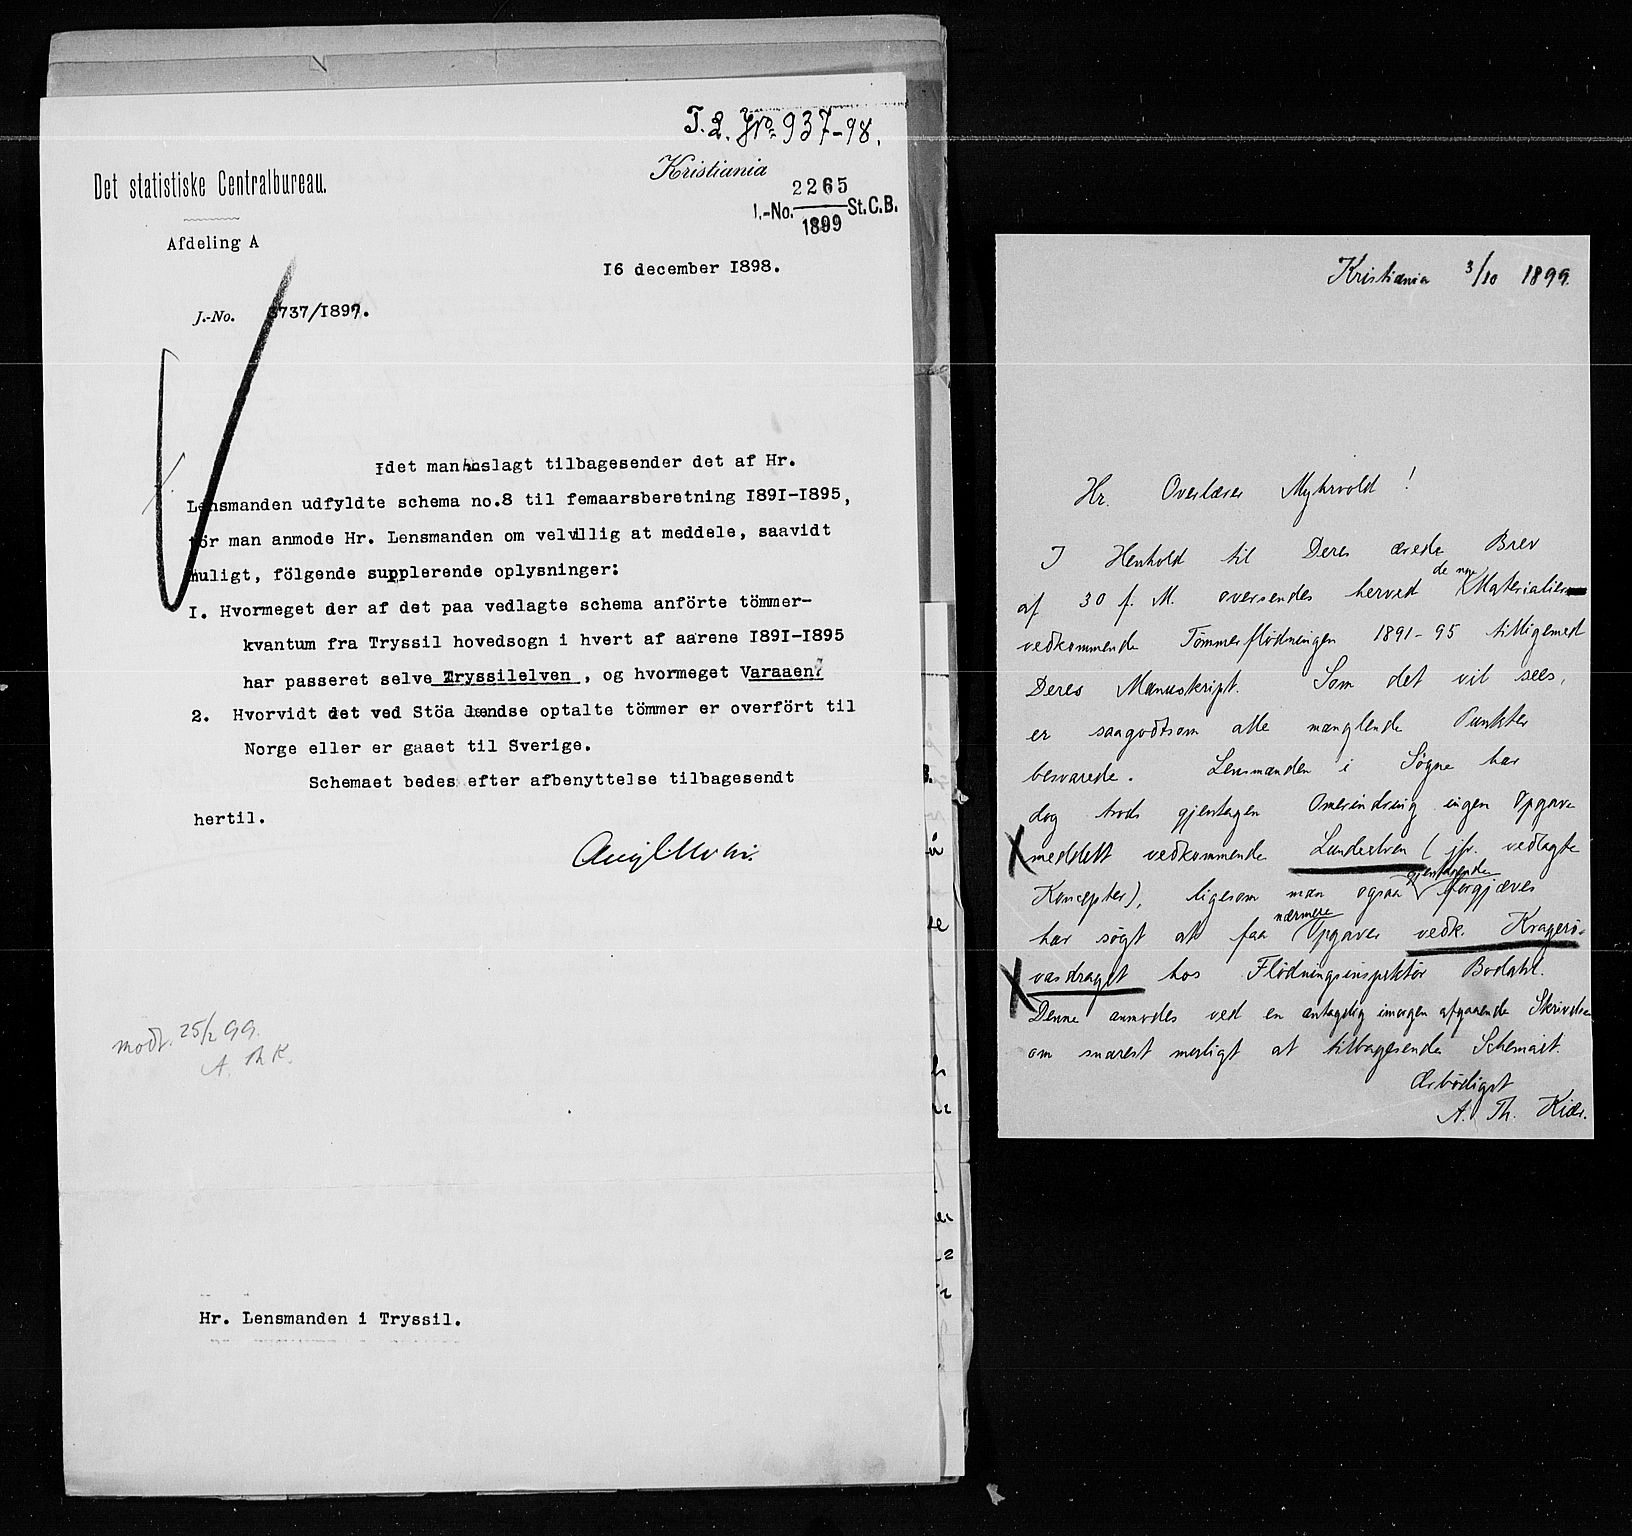 T. 2. No. 937-98.
Kristiania
Det statistiske Centralbureau.
2265
J.-No. St.C.B.
1899
Afdeling A
16 december 1898.
J.-No. 3737/1897.
Idet man hoslagt tilbagesender det af Hr.
Lensmanden udfyldte schema no.8 til femaarsberetning 1891-1895,
tör man anmode Hr. Lensmanden om velvillig at meddele, saavidt
muligt, fölgende supplerende oplysninger:
1. Hvormeget der af det paa vedlagte schema anförte tömmer-
kvantum fra Tryssil hovedsogn i hvert af aarene 1891-1895
har passeret selve Tryssilelven , og hvormeget Varaaen?
2. Hvorvidt det ved Stöa lændse optalte tömmer er overfört til
Norge eller er gaaet til Sverige.
Schemaet bedes efter afbenyttelse tilbagesendt
hertil.
modt. 25/2 99.
A. Th K.
Hr. Lensmanden i Tryssil.
Kristiania 3/10 1899.
Hr. Overlærer Myhrvold !
I Henhold til Deres ærede Brev
af 30 f. M. oversendes herved de nye Materialier
vedkommende Tømmerflødningen 1891-95 tilligemed
Deres Manuskript. Som det vil sees,
er saagodtsom alle manglende Punkter
besvarede. Lensmanden i Søgne har
dog trods gjentagen Omerindring ingen Opgave
meddelt vedkommende Lundeelven (jfr. vedlagte
Koncepter), ligesom man ogsaa gjentagende forgjæves
har søgt at faa nærmere Opgaver vedk. Kragerø-
vasdraget hos Flødningsinspektør Bødahl.
Denne anmodes ved en antagelig imorgen afgaaende Skrivelse
om snarest muligt at tilbagesende Schemaet.
Ærbødigst
A. Th. Kiær.